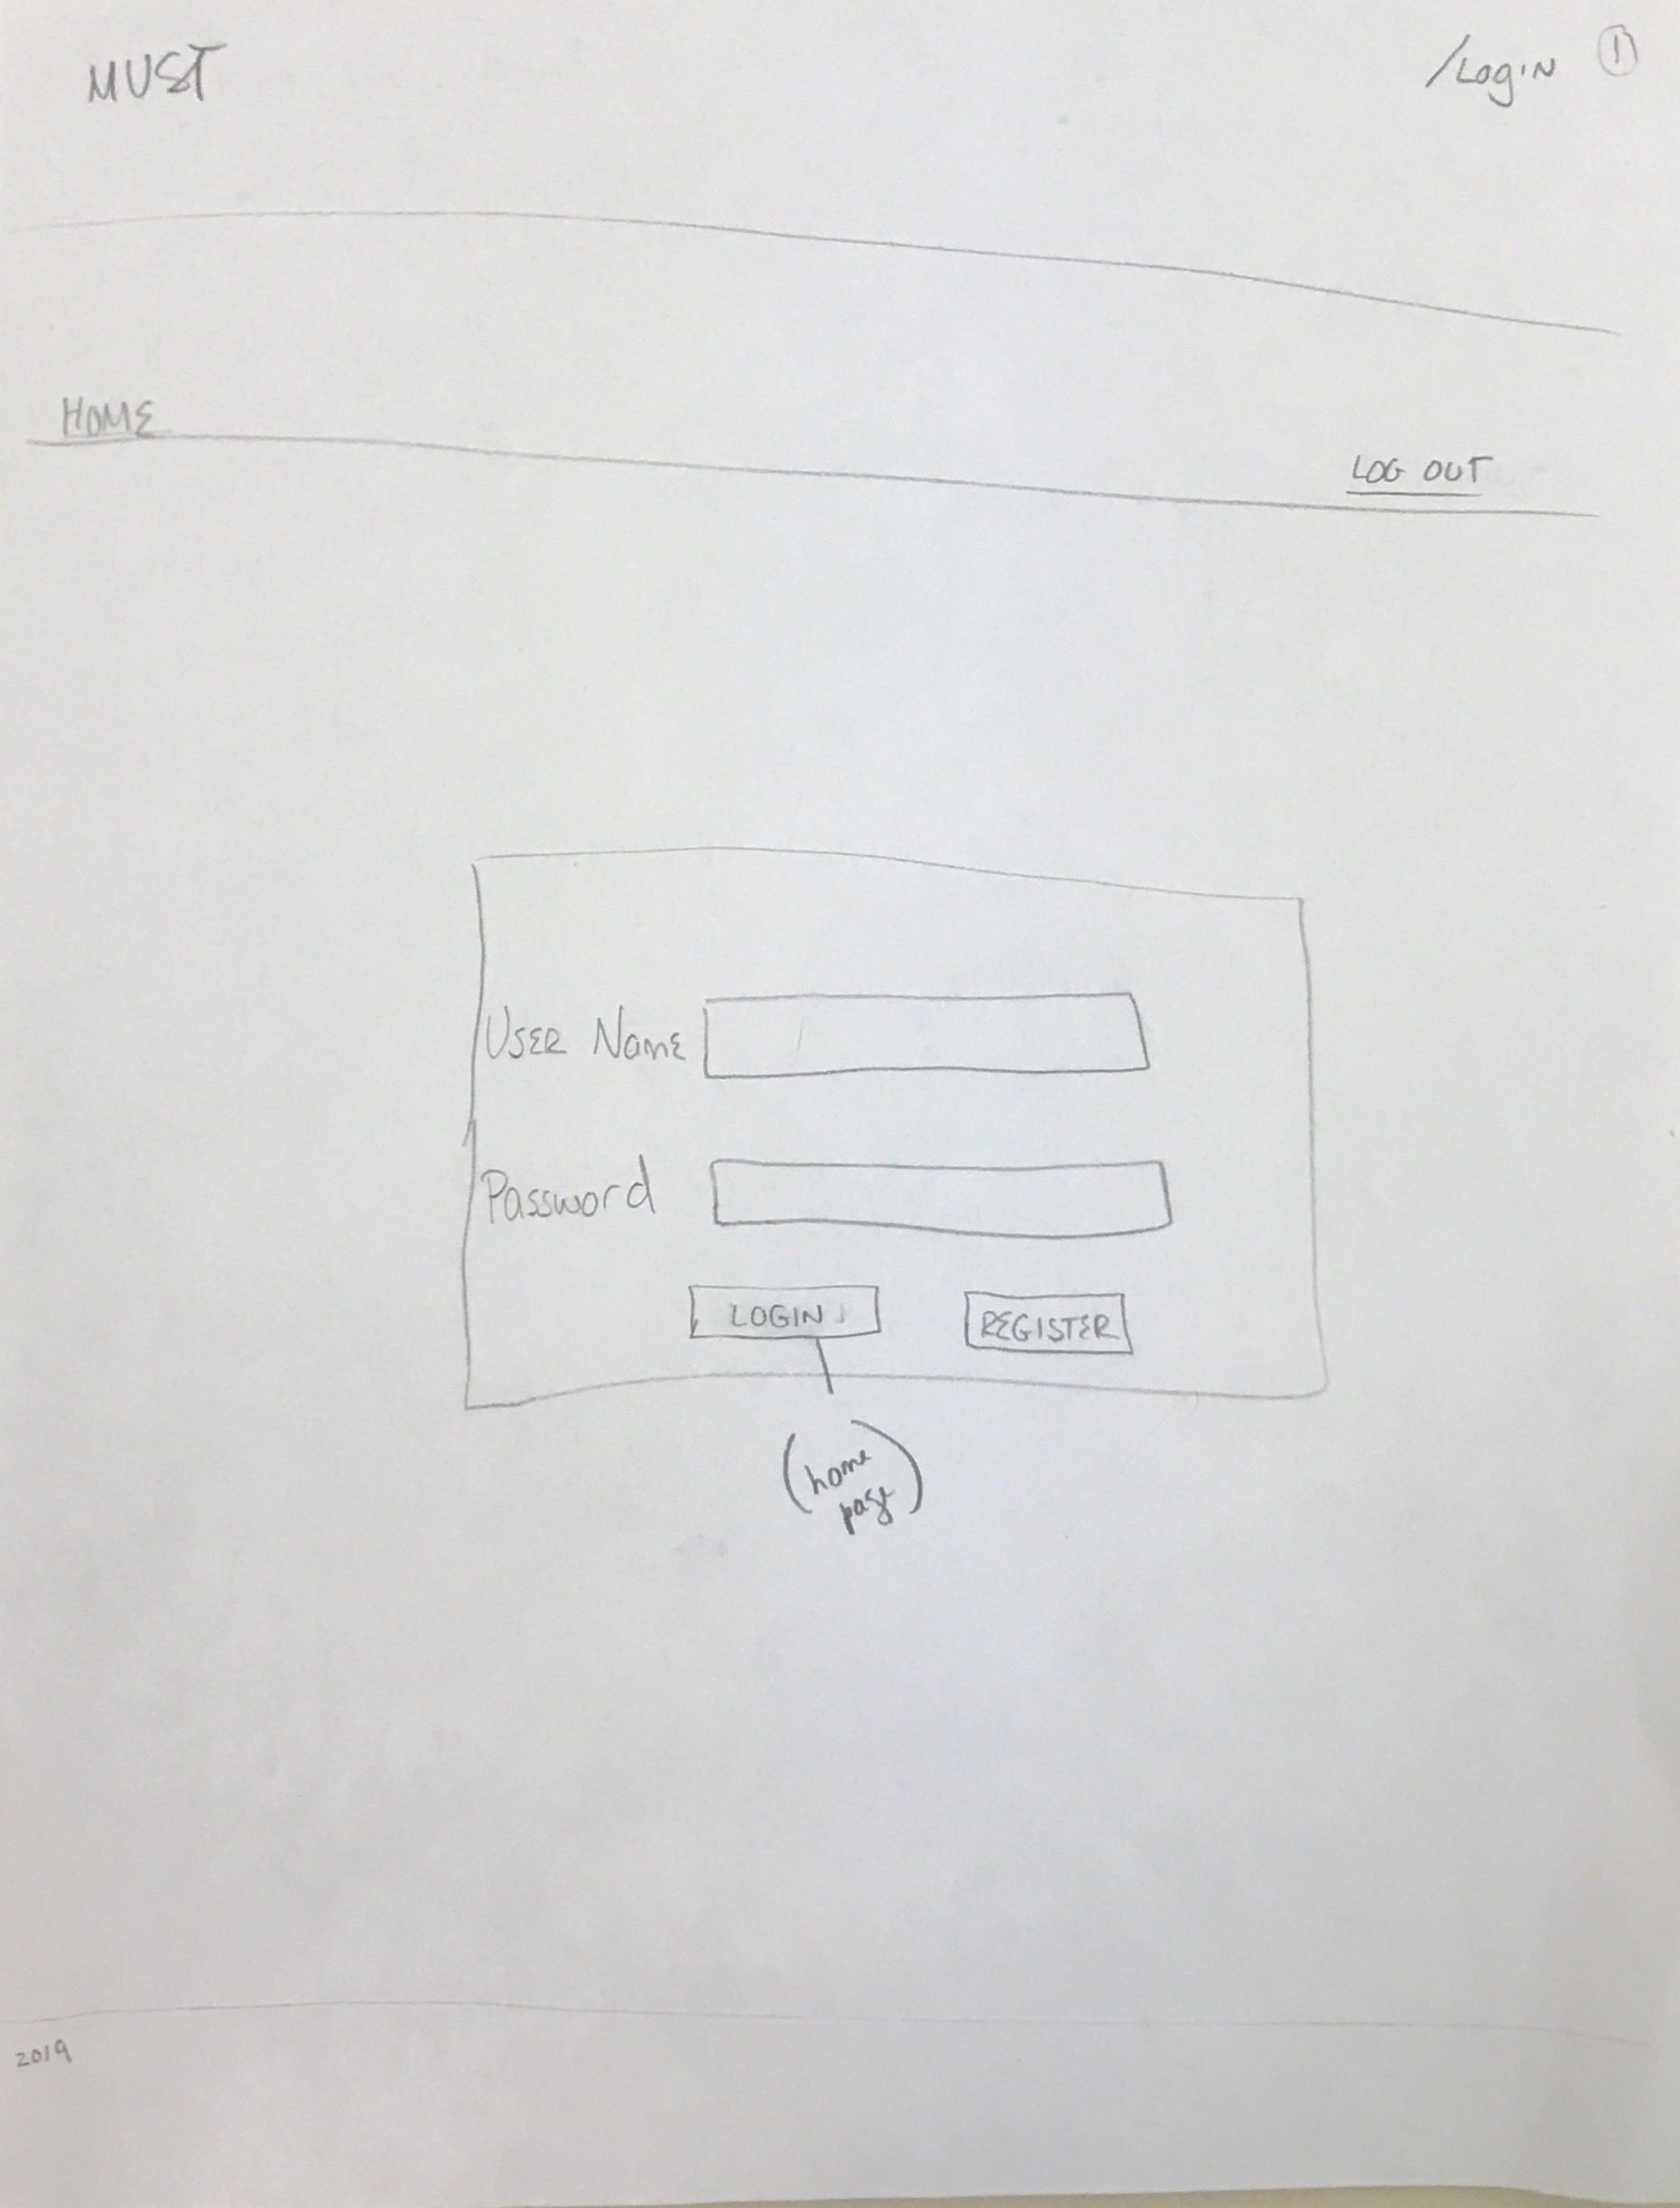 MUST
/Login 1
HOME
LOG OUT
User Name
Password
LOGIN
REGISTER
(home
page)
2019